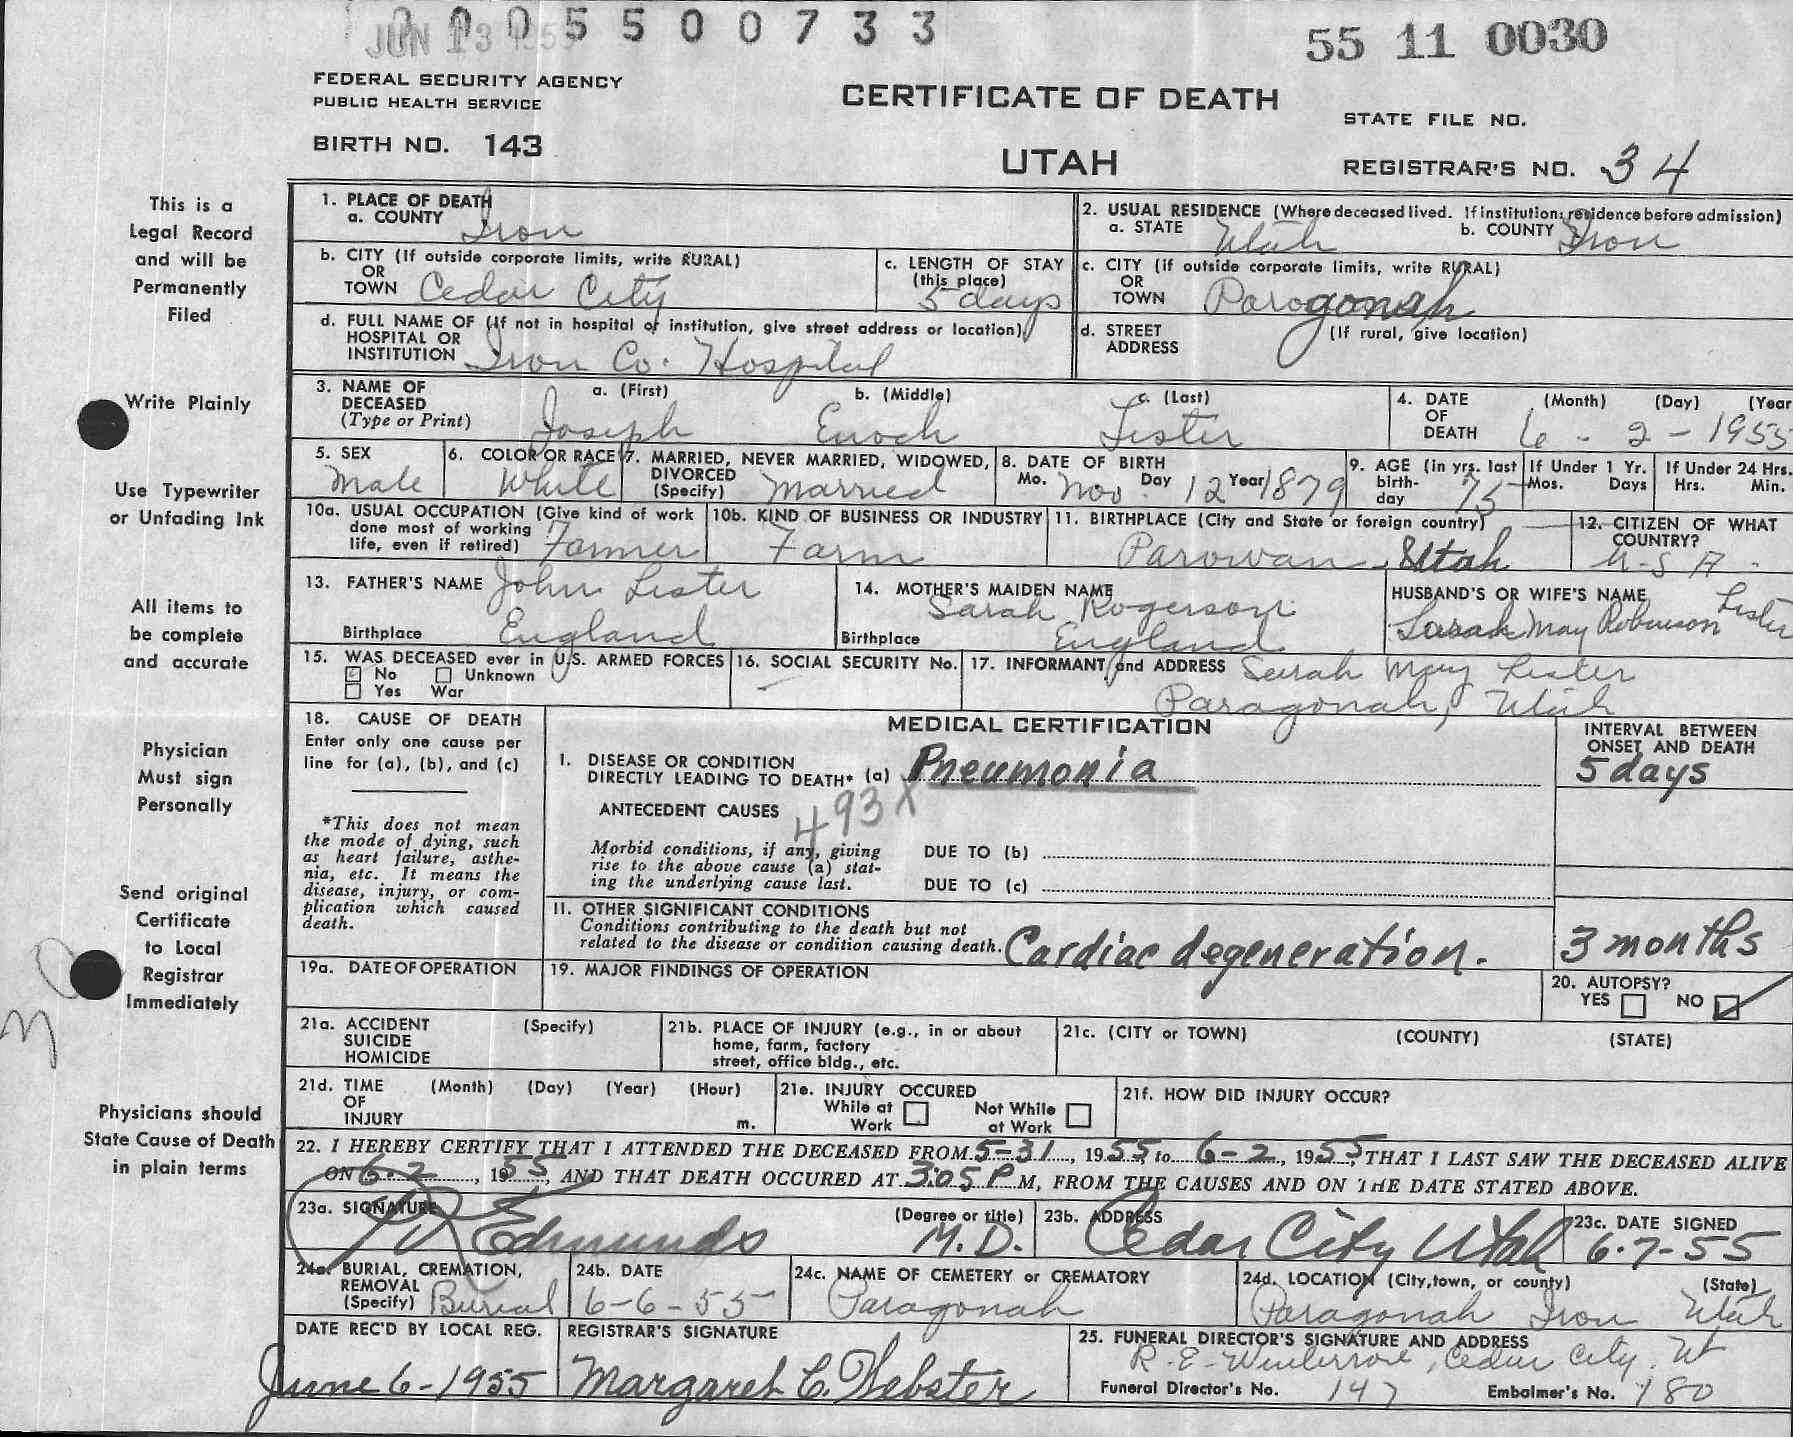 JUN 13 1955
0005500733
55 11 0030
FEDERAL SECURITY AGENCY
PUBLIC HEALTH SERVICE
CERTIFICATE OF DEATH
STATE FILE NO.
BIRTH NO. 143
UTAH
REGISTRAR'S NO. 34
This is a
Legal Record
and will be
Permanently
Filed
Write Plainly
Use Typewriter
or Unfading Ink
All items to
be complete
and accurate
Physician
Must sign
Personally
Send original
Certificate
to Local
Registrar
Immediately
Physicians should
State Cause of Death
in plain terms
1. PLACE OF DEATH
a. COUNTY Iron
2. USUAL RESIDENCE (Where deceased lived. If institution: residence before admission)
a. STATE Utah b. COUNTY Iron
b. CITY (If outside corporate limits, write RURAL)
OR
TOWN Cedar City
c. LENGTH OF STAY
(this place)
5 days
c. CITY (if outside corporate limits, write RURAL)
OR
TOWN Paragonah
d. FULL NAME OF (If not in hospital or institution, give street address or location)
HOSPITAL OR
INSTITUTION Iron Co. Hospital
d. STREET (If rural, give location)
ADDRESS
3. NAME OF a. (First) b. (Middle) c. (Last)
DECEASED
(Type or Print) Joseph Enoch Lister
4. DATE (Month) (Day) (Year
OF
DEATH 6 - 2 - 1955
5. SEX
Male
6. COLOR OR RACE
White
7. MARRIED, NEVER MARRIED, WIDOWED,
DIVORCED
(Specify) Married
8. DATE OF BIRTH
Mo. Nov. Day 12 Year 1879
9. AGE (in yrs. last
birth-
day 75
If Under 1 Yr.
Mos. Days
If Under 24 Hrs.
Hrs. Min.
10a. USUAL OCCUPATION (Give kind of work
done most of working
life, even if retired) Farmer
10b. KIND OF BUSINESS OR INDUSTRY
Farm
11. BIRTHPLACE (City and State or foreign country)
Parowan, Utah
12. CITIZEN OF WHAT
COUNTRY?
U-S A.
13. FATHER'S NAME John Lister
Birthplace England
14. MOTHER'S MAIDEN NAME
Sarah Rogerson
Birthplace England
HUSBAND'S OR WIFE'S NAME
Sarah May Robinson Lister
15. WAS DECEASED ever in U.S. ARMED FORCES
No Unknown
Yes War
16. SOCIAL SECURITY No.
17. INFORMANT and ADDRESS Sarah May Lister
Paragonah, Utah
18. CAUSE OF DEATH
Enter only one cause per
line for (a), (b), and (c)
*This does not mean
the mode of dying, such
as heart failure, asthe-
nia, etc. It means the
disease, injury, or com-
plication which caused
death.
MEDICAL CERTIFICATION
I. DISEASE OR CONDITION
DIRECTLY LEADING TO DEATH* (a) Pneumonia
ANTECEDENT CAUSES 493X
Morbid conditions, if any, giving
rise to the above cause (a) stat-
ing the underlying cause last.
DUE TO (b)
DUE TO (c)
II. OTHER SIGNIFICANT CONDITIONS
Conditions contributing to the death but not
related to the disease or condition causing death. Cardiac degeneration.
INTERVAL BETWEEN
ONSET AND DEATH
5 days
3 months
19a. DATE OF OPERATION
19. MAJOR FINDINGS OF OPERATION
20. AUTOPSY?
YES NO
21a. ACCIDENT (Specify)
SUICIDE
HOMICIDE
21b. PLACE OF INJURY (e.g., in or about
home, farm, factory
street, office bldg., etc.
21c. (CITY or TOWN) (COUNTY) (STATE)
21d. TIME (Month) (Day) (Year) (Hour)
OF
INJURY m.
21e. INJURY OCCURED
While at Work Not While at Work
21f. HOW DID INJURY OCCUR?
22. I HEREBY CERTIFY THAT I ATTENDED THE DECEASED FROM 5-31, 1955 to 6-2, 1955, THAT I LAST SAW THE DECEASED ALIVE
ON 6-2, 1955, AND THAT DEATH OCCURED AT 3:05 P M, FROM THE CAUSES AND ON THE DATE STATED ABOVE.
23a. SIGNATURE (Degree or title)
Edmunds M.D.
23b. ADDRESS
Cedar City Utah
23c. DATE SIGNED
6-7-55
24a. BURIAL, CREMATION,
REMOVAL
(Specify) Burial
24b. DATE
6-6-55
24c. NAME OF CEMETERY or CREMATORY
Paragonah
24d. LOCATION (City, town, or county) (State)
Paragonah Iron Utah
DATE REC'D BY LOCAL REG.
June 6-1955
REGISTRAR'S SIGNATURE
Margaret C. Webster
25. FUNERAL DIRECTOR'S SIGNATURE AND ADDRESS
R. E. Cedar City. Ut
Funeral Director's No. 147 Embalmer's No. 180